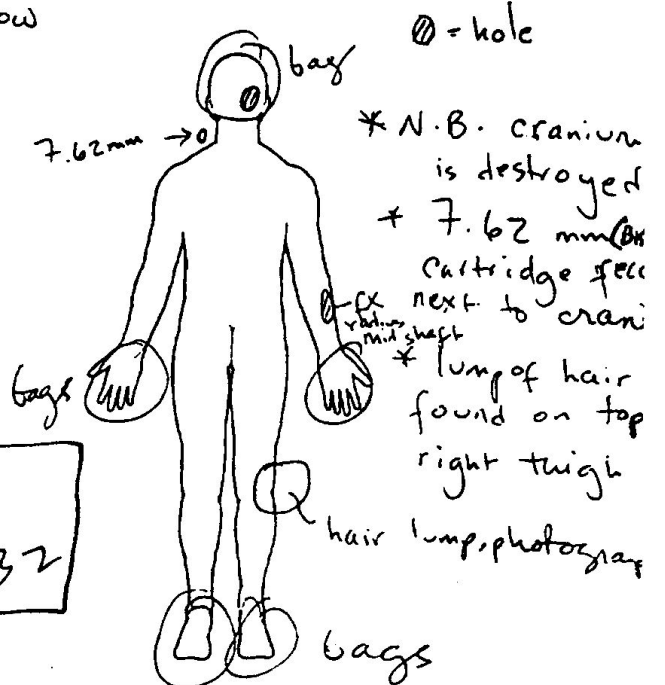 ow
= hole
bag
7.62mm →
* N.B. cranium
is destroyed
* 7.62 mm
cartridge fell
next to crani
fx
radius
mid shaft
* lump of hair
found on top
right thigh
bags
32
hair lump, photograp
bags